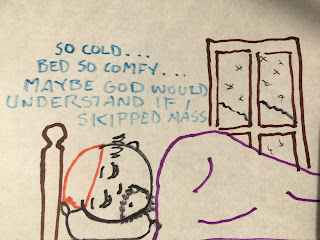 SO COLD...
BED SO COMFY...
MAYBE GOD WOULD
UNDERSTAND IF I
SKIPPED MASS